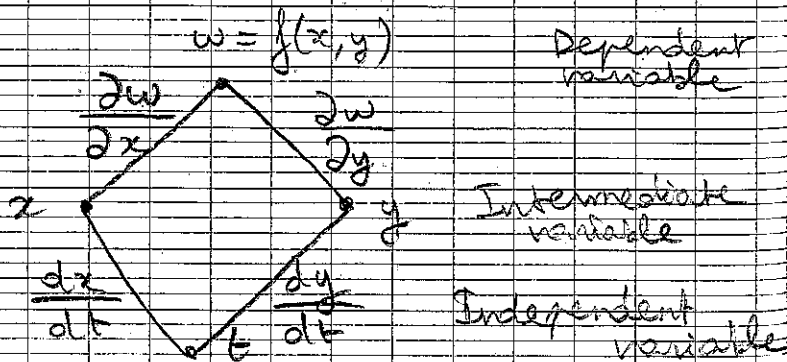 w = f(x, y)
Dependent
variable
∂w
∂x
∂w
∂y
x
y
Intermediate
variable
dx
dt
t
dy
dt
Independent
variable